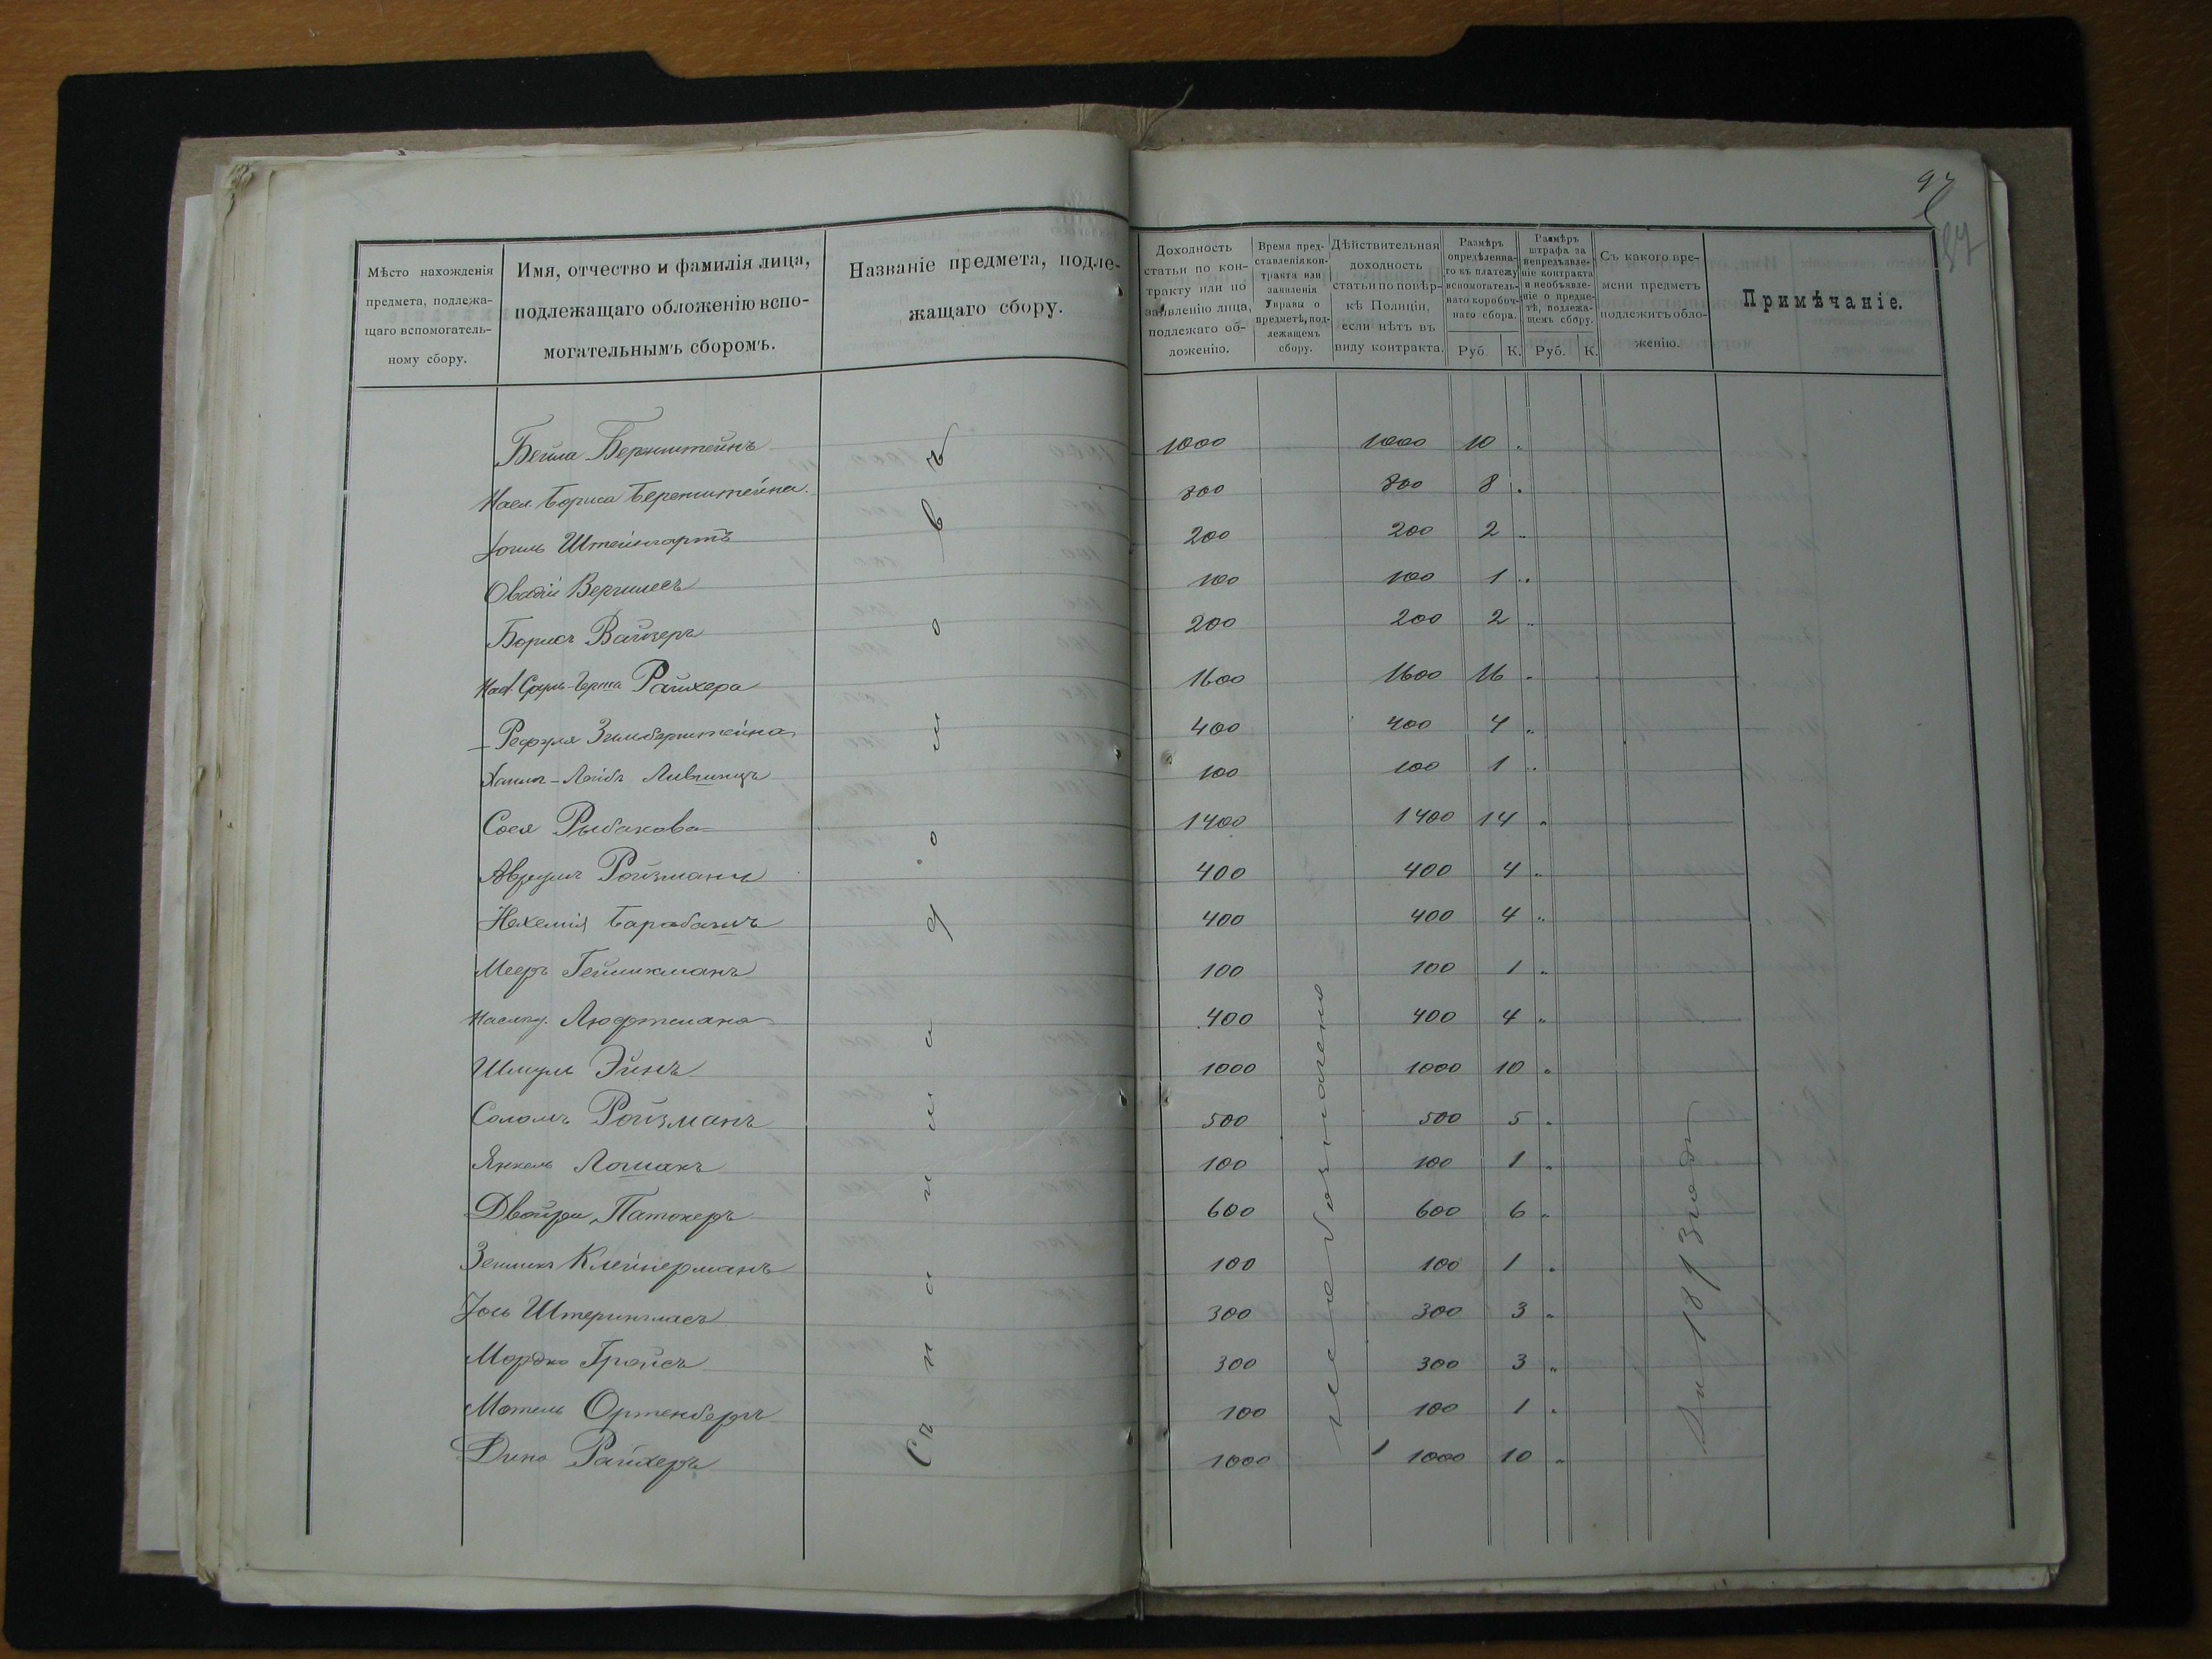 97
87
Мѣсто нахожденія предмета, подлежащаго вспомогательному сбору.
Имя, отчество и фамилія лица, подлежащаго обложенію вспомогательнымъ сборомъ.
Названіе предмета, подлежащаго сбору.
Доходность статьи по контракту или по заявленію лица, подлежаго обложенію.
Время представленія контракта или заявленія Управы о предметѣ, подлежащемъ сбору.
Дѣйствительная доходность статьи по повѣркѣ Полиціи, если нѣтъ въ виду контракта.
Размѣръ опредѣленнаго къ платежу вспомогательнаго коробочнаго сбора.
Руб. К.
Размѣръ штрафа за непредъявленіе контракта и необъявленіе о предметѣ, подлежащемъ сбору.
Руб. К.
Съ какого времени предметъ подлежитъ обложенію.
Примѣчаніе.
Бейла Бернштейнъ 1000 1000 10 "
Насл. Бориса Бернштейна 800 800 8 "
Штейнгартъ 200 200 2 "
Овадій 100 100 1 "
Борисъ Вайзеръ 200 200 2 "
Насл. Райхера 1600 1600 16 "
Зильберштейна 400 400 4 "
Лейбъ Лившицъ 100 100 1 "
Сося Рыбакова 1400 1400 14 "
Аврумъ Ройзманъ 400 400 4 "
Нехемія Барабашъ 400 400 4 "
Мееръ Гейшихманъ 100 100 1 "
Наслед. Люфтмана 400 400 4 "
Шмуль Эйнъ 1000 1000 10 "
Соломъ Ройзманъ 500 500 5 "
Янкель Лошакъ 100 100 1 "
Двойра Патокеръ 600 600 6 "
Клейнерманъ 100 100 1 "
Іось Штеринглась 300 300 3 "
Мордко Гройсъ 300 300 3 "
Мотель Ортенбергъ 100 100 1 "
Дина Райхеръ 1000 1000 10 "
Съ найма домовъ
не обозначено
1893 года